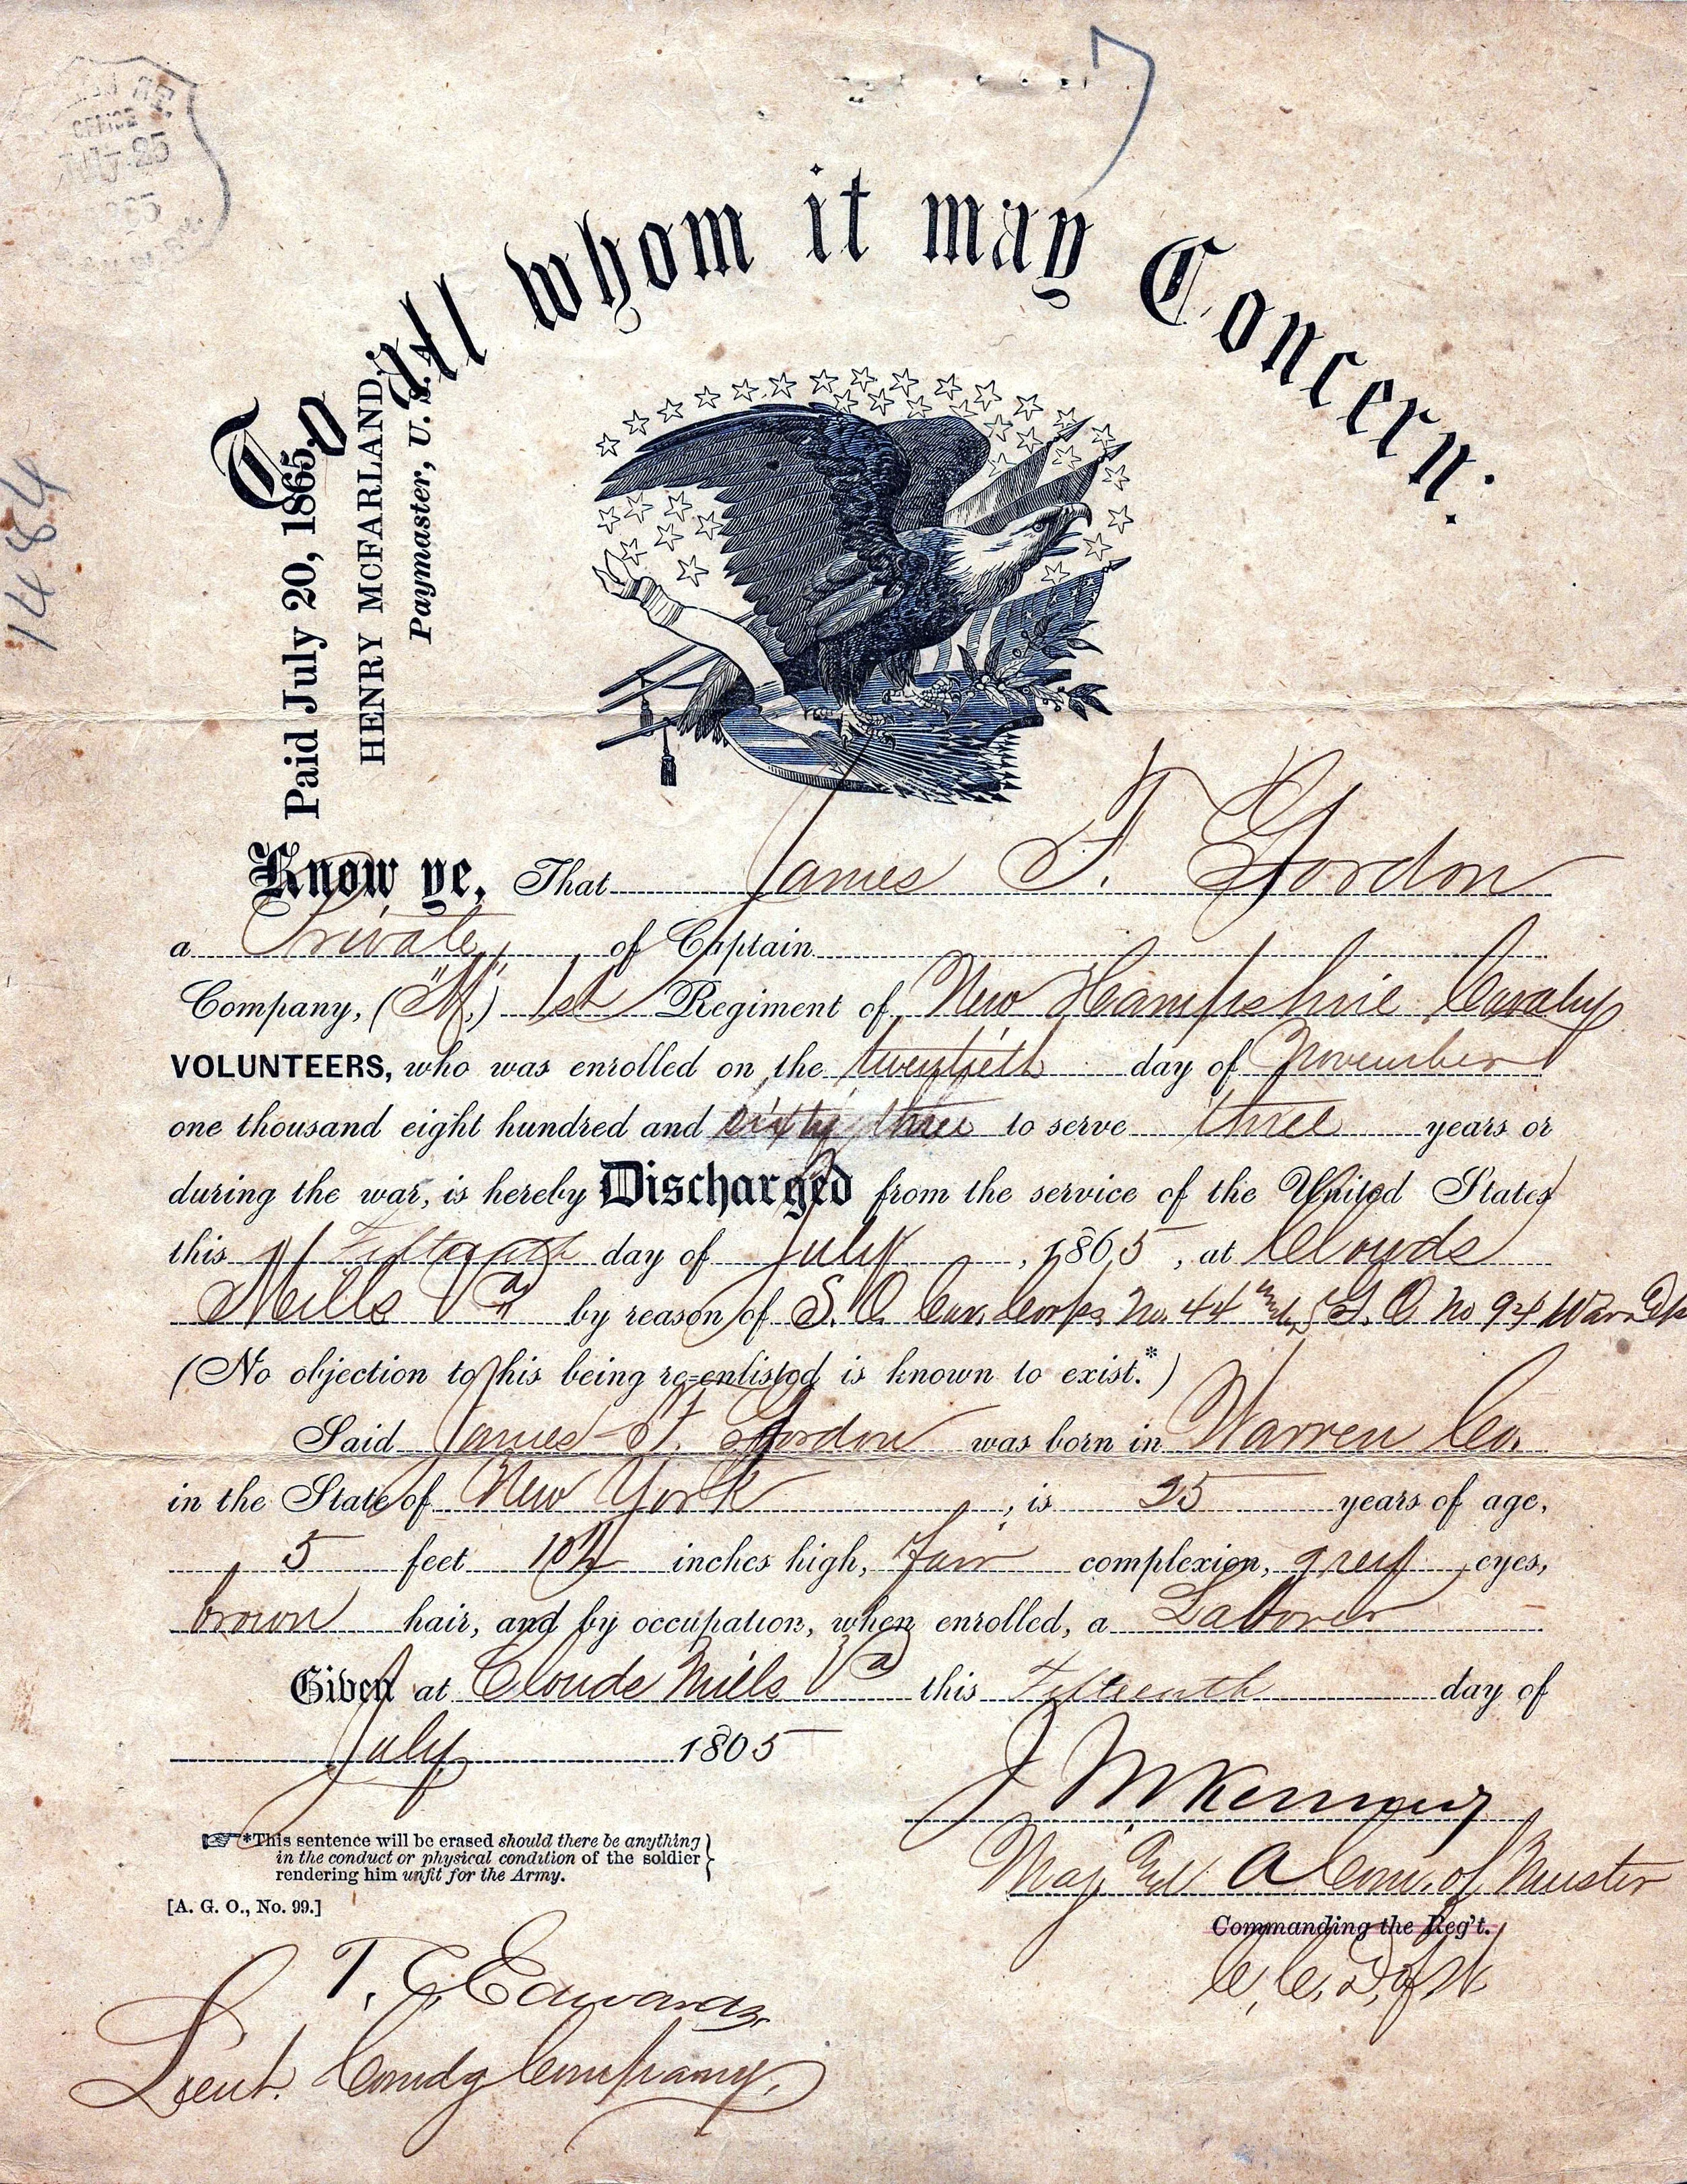 OFFICE
JULY 25
To all whom it may Concern:
1484
Paid July 20, 1865,
HENRY MCFARLAND,
Paymaster, U. S. A.
Know ye, That James F. Gordon
a Private, of Captain
Company, ("M,") 1st Regiment of New Hampshire Cavalry
VOLUNTEERS, who was enrolled on the twentieth day of November
one thousand eight hundred and sixty three to serve three years or
during the war, is hereby Discharged from the service of the United States
this Fifteenth day of July, 1865, at Clouds
Mills Va by reason of S. O. Cav. Corps No. 44 G. O. No 94 War Dpt
(No objection to his being re-enlisted is known to exist.*)
Said James F. Gordon was born in Warren Co.
in the State of New York, is 25 years of age,
5 feet 10½ inches high, Fair complexion, grey eyes,
brown hair, and by occupation, when enrolled, a Laborer
Given at Clouds Mills Va this Fifteenth day of
July 1865
*This sentence will be erased should there be anything
in the conduct or physical condition of the soldier
rendering him unfit for the Army.
[A. G. O., No. 99.]
Maj. A Com. of Muster
Commanding the Reg't.
T. C. Edwards
Lieut. Comdg Company.